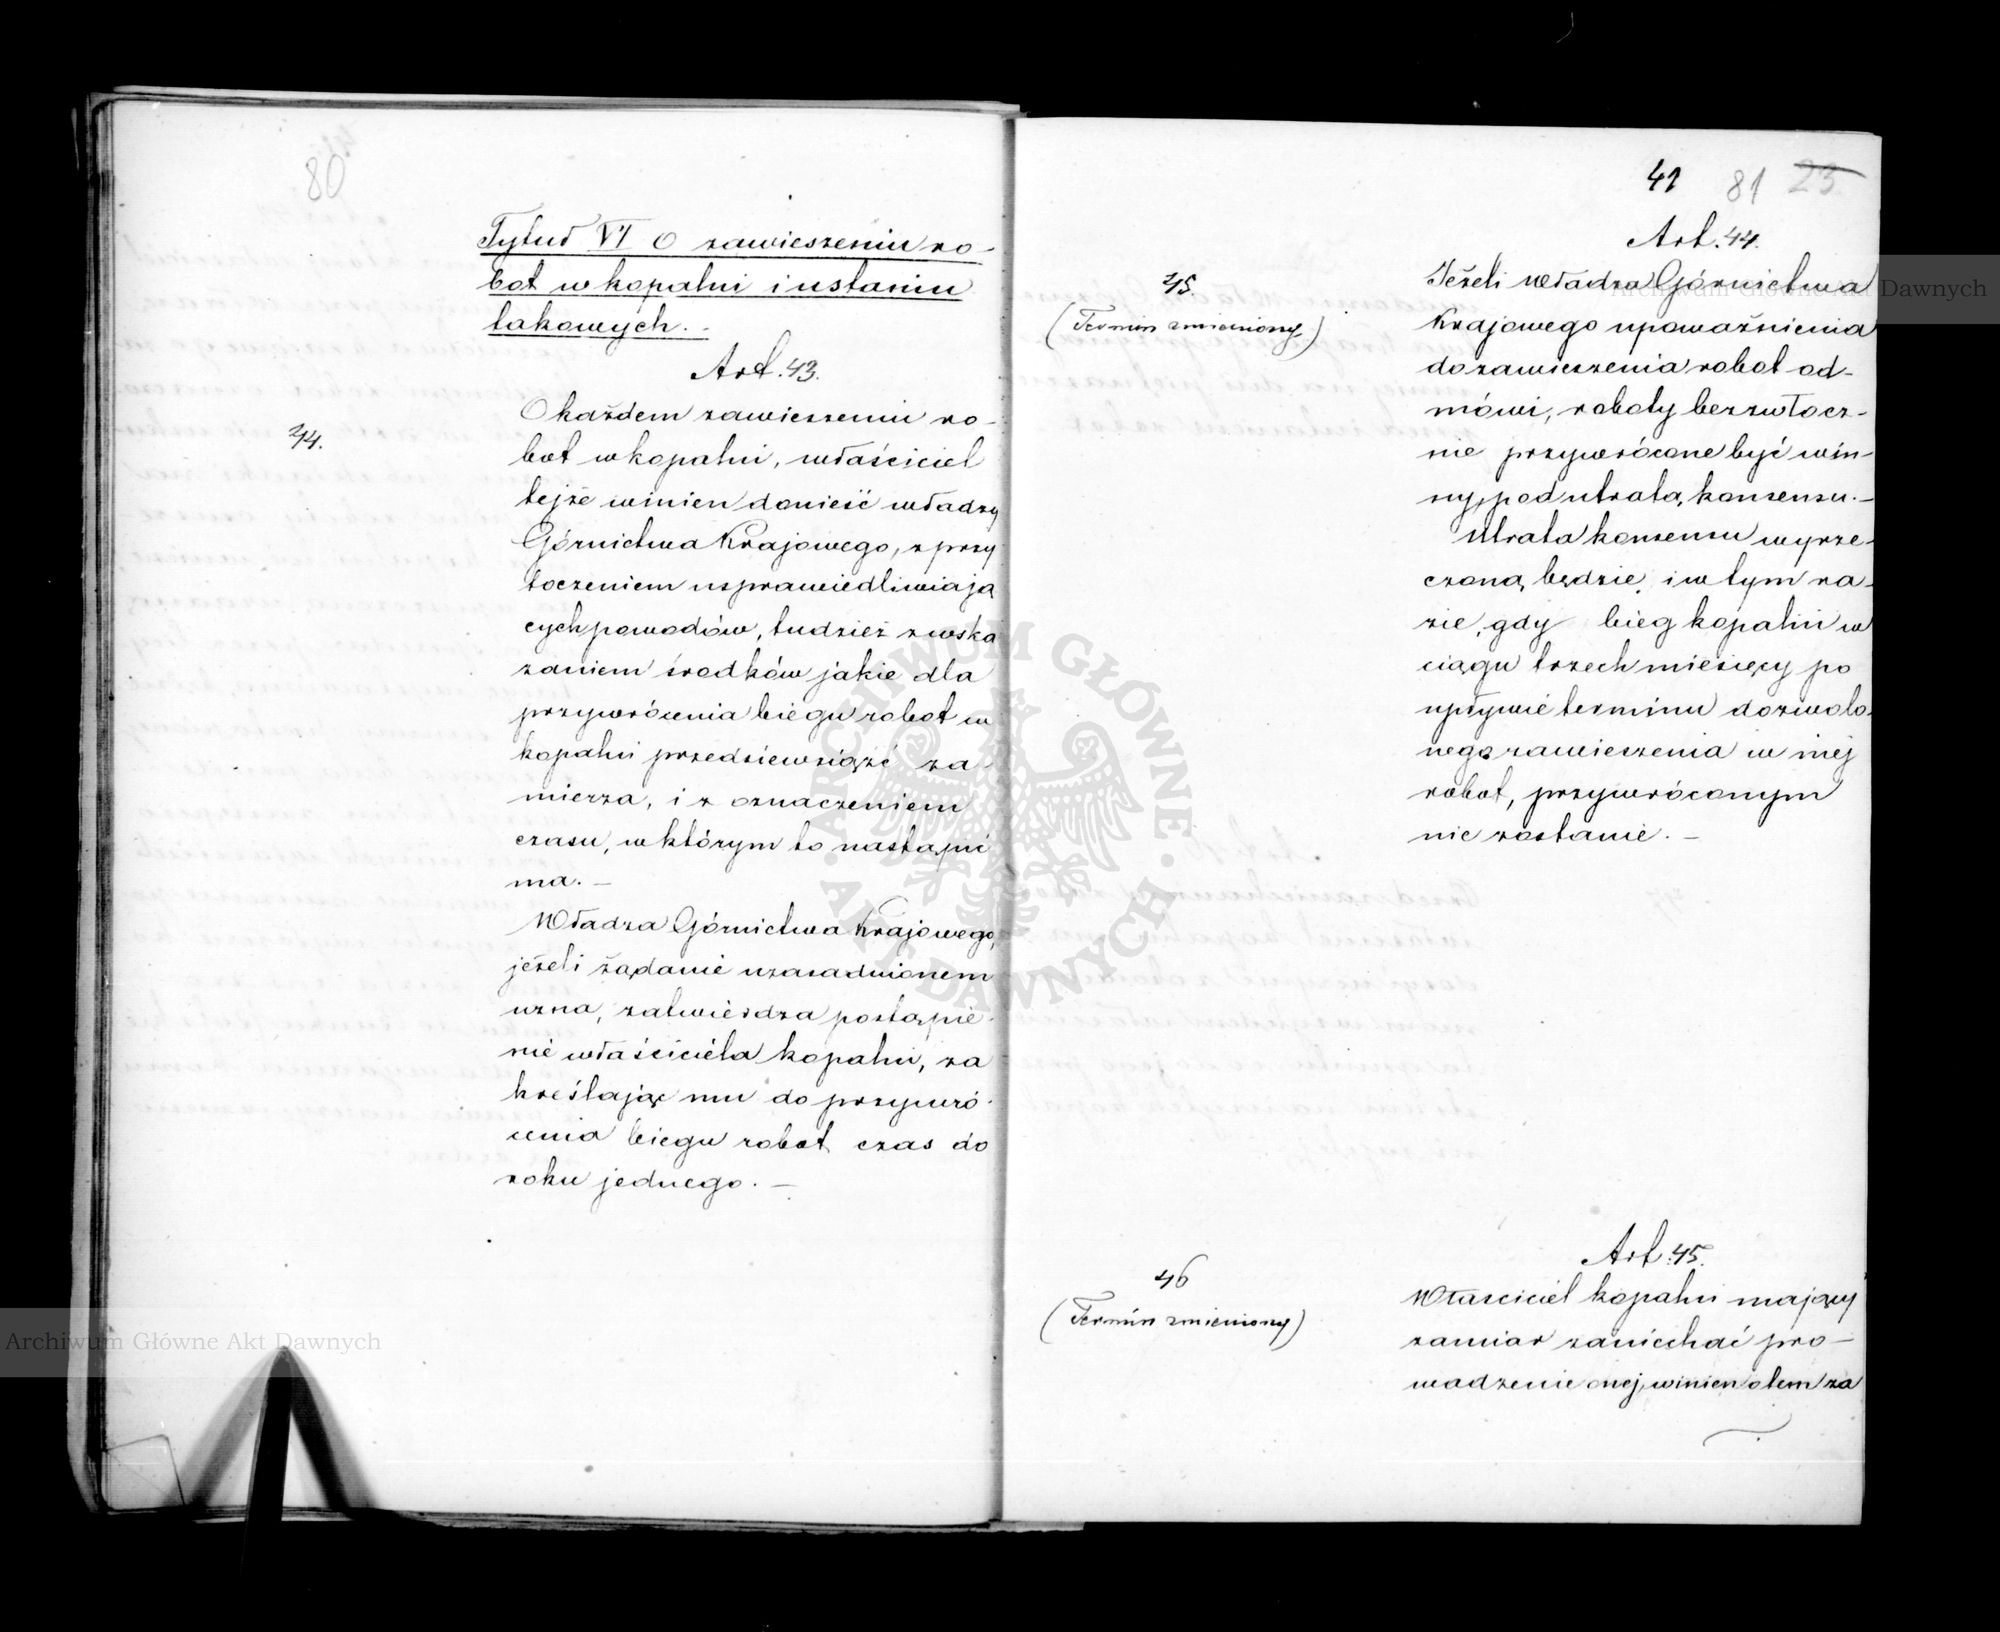 80
Tytuł VI O zawieszeniu ro-
bot w kopalni i ustaniu
takowych. -
Art. 43.
44.
O każdem zawieszeniu ro-
bot w kopalni, właściciel
tejże winien donieść władzy
Górnictwa Krajowego, z przy
toczeniem usprawiedliwiają
cych powodów, tudzież z wska
zaniem środków jakie dla
przywrócenia biegu robot w
kopalni przedsiewziąść za-
mierza, i z oznaczeniem
czasu, w którym to nastąpić
ma. -
Władza Górnictwa Krajowego,
jeżeli żądanie uzasadnionem
uzna, zatwierdza postąpie-
nie właściciela kopalni, za
kreślając mu do przywró-
cenia biegu robot czas do
roku jednego. -
41 81 23
Art. 44.
45.
(Termin zmieniony)
Jeżeli Władza Górnictwa
Krajowego upoważnienia
do zawieszenia robot od-
mówi, roboty bezzwłocz-
nie przywrócone być win-
ny, pod utratą konsensu. -
Utrata konsensu wyrze-
czoną będzie, i w tym ra-
zie, gdy bieg kopalni w
ciągu trzech miesięcy po
upływie terminu dozwolo-
nego zawieszenia w niej
robot, przywróconym
nie zostanie. -
Art. 45.
46
(Termin zmieniony)
Właściciel kopalni mający
zamiar zaniechać pro-
wadzenie onej, winien o tem za
Archiwum Główne Akt Dawnych
Archiwum Główne Akt Dawnych
ARCHIWUM GŁÓWNE AKT DAWNYCH